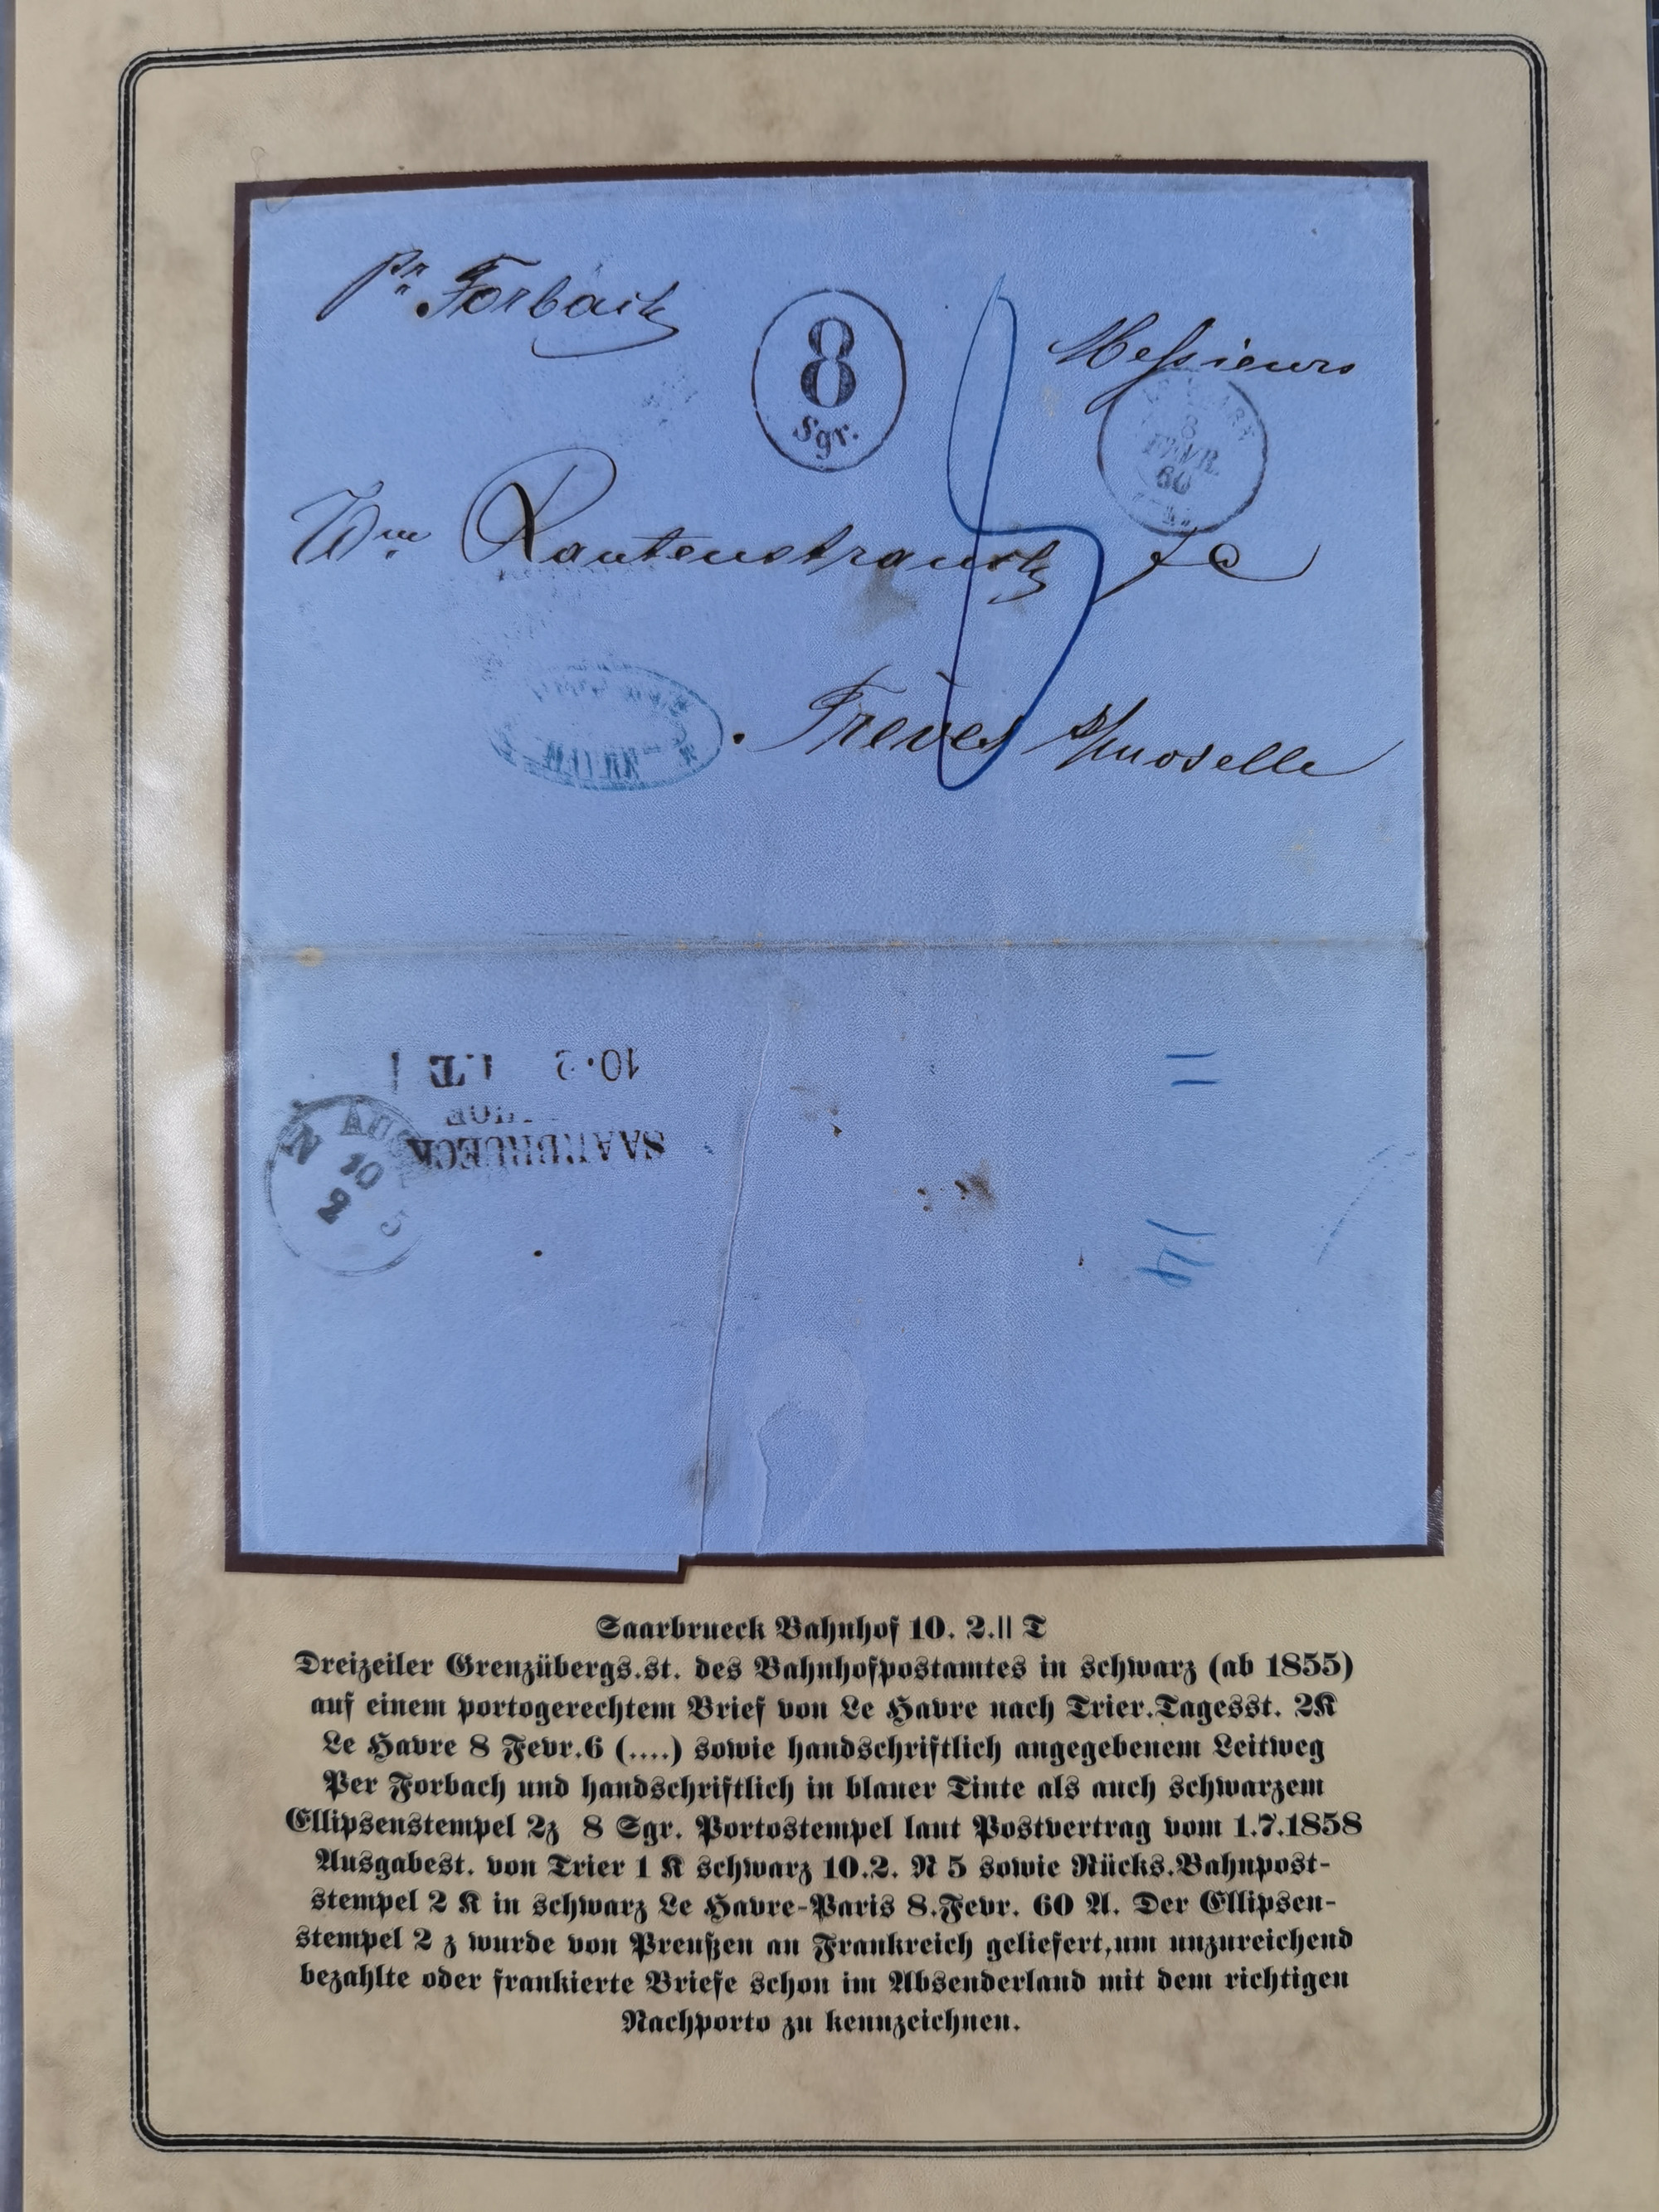 pr. Forbach
8
Sgr.
Messieurs
8
FEVR.
60
Wm Rautenstrauch & Co
Trèves s/moselle
10·2 T
SAARBRUECK
N AUS
10
2
5
11
14
Saarbrueck Bahnhof 10. 2.II T
Dreizeiler Grenzübergs.st. des Bahnhofpostamtes in schwarz (ab 1855)
auf einem portogerechtem Brief von Le Havre nach Trier.Tagesst. 2K
Le Havre 8 Fevr.6 (....) sowie handschriftlich angegebenem Leitweg
Per Forbach und handschriftlich in blauer Tinte als auch schwarzem
Ellipsenstempel 2z 8 Sgr. Portostempel laut Postvertrag vom 1.7.1858
Ausgabest. von Trier 1 K schwarz 10.2. N 5 sowie Rücks.Bahnpost-
stempel 2 K in schwarz Le Havre-Paris 8.Fevr. 60 A. Der Ellipsen-
stempel 2 z wurde von Preußen an Frankreich geliefert,um unzureichend
bezahlte oder frankierte Briefe schon im Absenderland mit dem richtigen
Nachporto zu kennzeichnen.